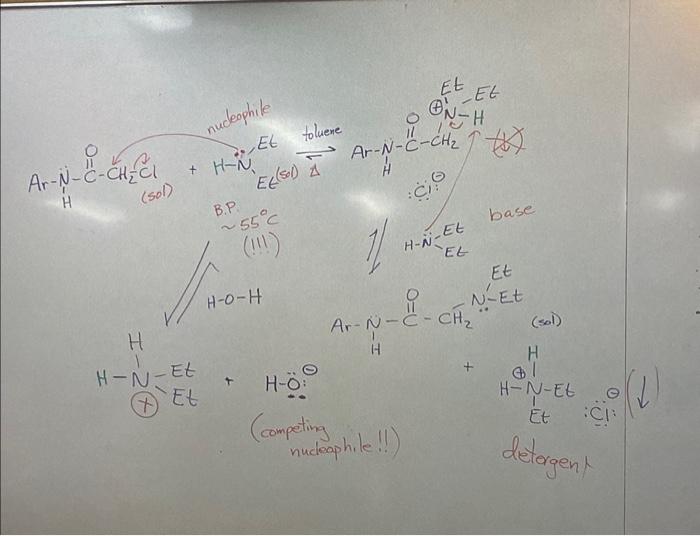 nucleophile
Et
toluene
Ar-N-C-CH2-Cl
O
H
(sol)
+
H-N
Et
Et (sol)
Δ
B.P.
~55°C
(!!!)
Et
Et
⊕N-H
O
Ar-N-C-CH2
H
:Cl:⊖
base
H-N-Et
Et
H-O-H
Et
O
N-Et
Ar-N-C-CH2
H
(sol)
+
H
H-N-Et
Et
⊕
+
H-O:⊖
(competing
nucleophile!!)
H
⊕
H-N-Et
Et
:Cl:⊖
(↓)
detergent